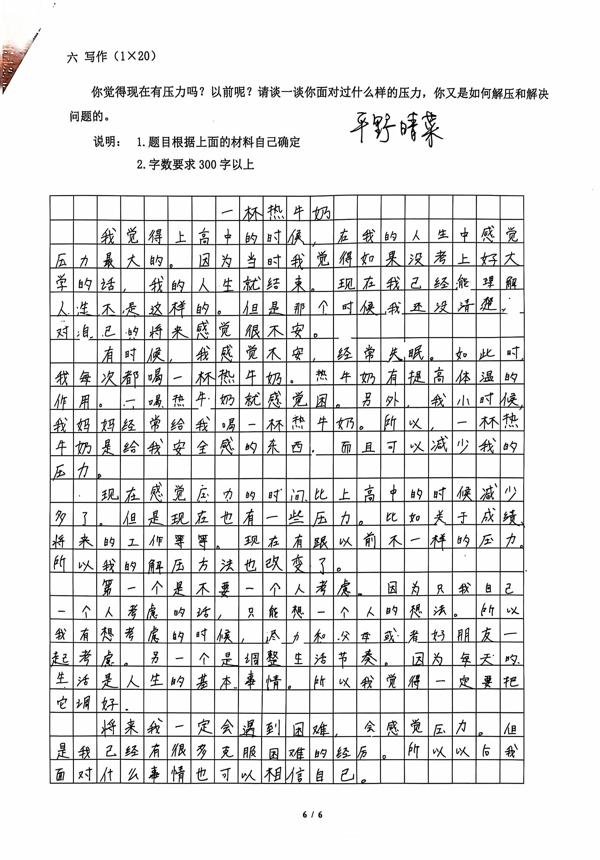 六 写作（1×20）
你觉得现在有压力吗？以前呢？请谈一谈你面对过什么样的压力，你又是如何解压和解决
问题的。
平野晴菜
说明： 1.题目根据上面的材料自己确定
2.字数要求 300 字以上
一杯热牛奶
我觉得上高中的时候，在我的人生中感觉
压力最大的。因为当时我觉得如果没考上好大
学的话，我的人生就结束。现在我已经能理解
人生不是这样的。但是那个时候我还没清楚。
对自己的将来感觉很不安。
有时候，我感觉不安，经常失眠。如此时，
我每次都喝一杯热牛奶。热牛奶有提高体温的
作用。一喝热牛奶就感觉困。另外，我小时候，
我妈妈经常给我喝一杯热牛奶。所以，一杯热
牛奶是给我安全感的东西。而且可以减少我的
压力。
现在感觉压力的时间比上高中的时候减少
多了。但是现在也有一些压力。比如关于成绩，
将来的工作等等。现在有跟以前不一样的压力。
所以我的解压方法也改变了。
第一个是不要一个人考虑。因为只我自己
一个人考虑的话，只能想一个人的想法。所以
我有想考虑的时候，尽力和父母或者好朋友一
起考虑。另一个是调整生活节奏。因为每天的
生活是人生的基本事情。所以我觉得一定要把
它调好。
将来我一定会遇到困难，会感觉压力。但
是我已经有很多克服困难的经历。所以以后我
面对什么事情也可以相信自己。
6 / 6